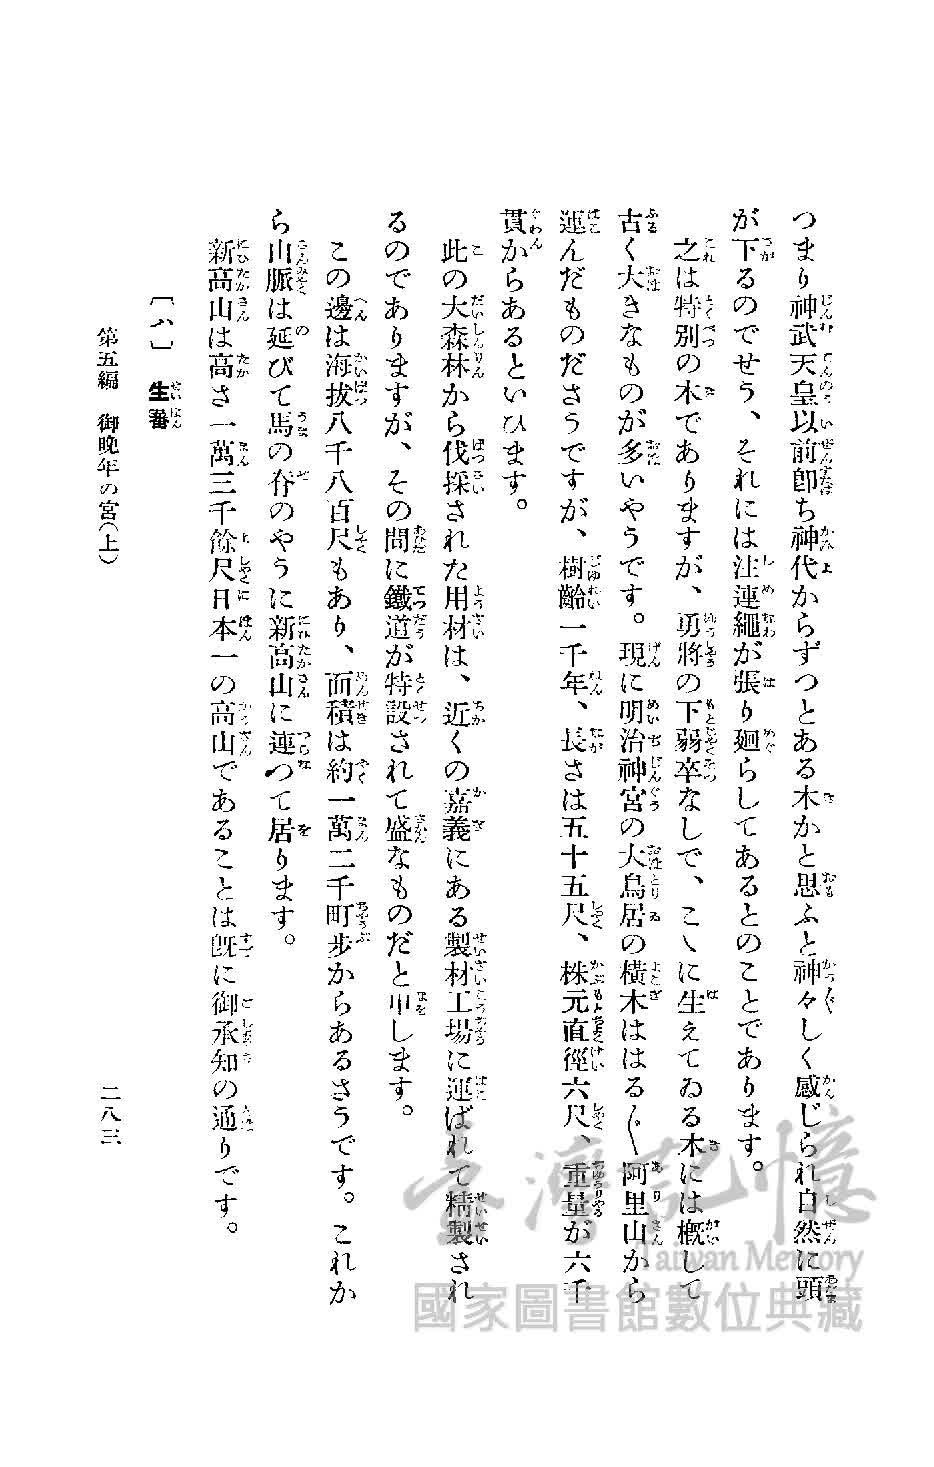 つまり神武天皇以前卽ち神代からずつとある木かと思ふと神々しく感じられ自然に頭
が下るのでせう、それには注連繩が張り廻らしてあるとのことであります。
之は特別の木でありますが、勇將の下弱卒なしで、こゝに生えてゐる木には槪して
古く大きなものが多いやうです。現に明治神宮の大鳥居の橫木ははる〲阿里山から
運んだものださうですが、樹齡一千年、長さは五十五尺、株元直徑六尺、重量が六千
貫からあるといひます。
此の大森林から伐採された用材は、近くの嘉義にある製材工場に運ばれて精製され
るのでありますが、その間に鐵道が特設されて盛なものだと申します。
この邊は海拔八千八百尺もあり、面積は約一萬二千町步からあるさうです。これか
ら山脈は延びて馬の脊のやうに新高山に連つて居ります。
新高山は高さ一萬三千餘尺日本一の高山であることは旣に御承知の通りです。
〔八〕 生蕃
第五編 御晚年の宮(上)
二八三
臺灣記憶
Taiwan Memory
國家圖書館數位典藏